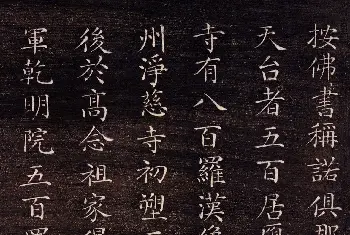 按佛書稱諾俱那
天台者五百居
寺有八百羅漢
州淨慈寺初塑
後於髙念祖家
軍乾明院五百